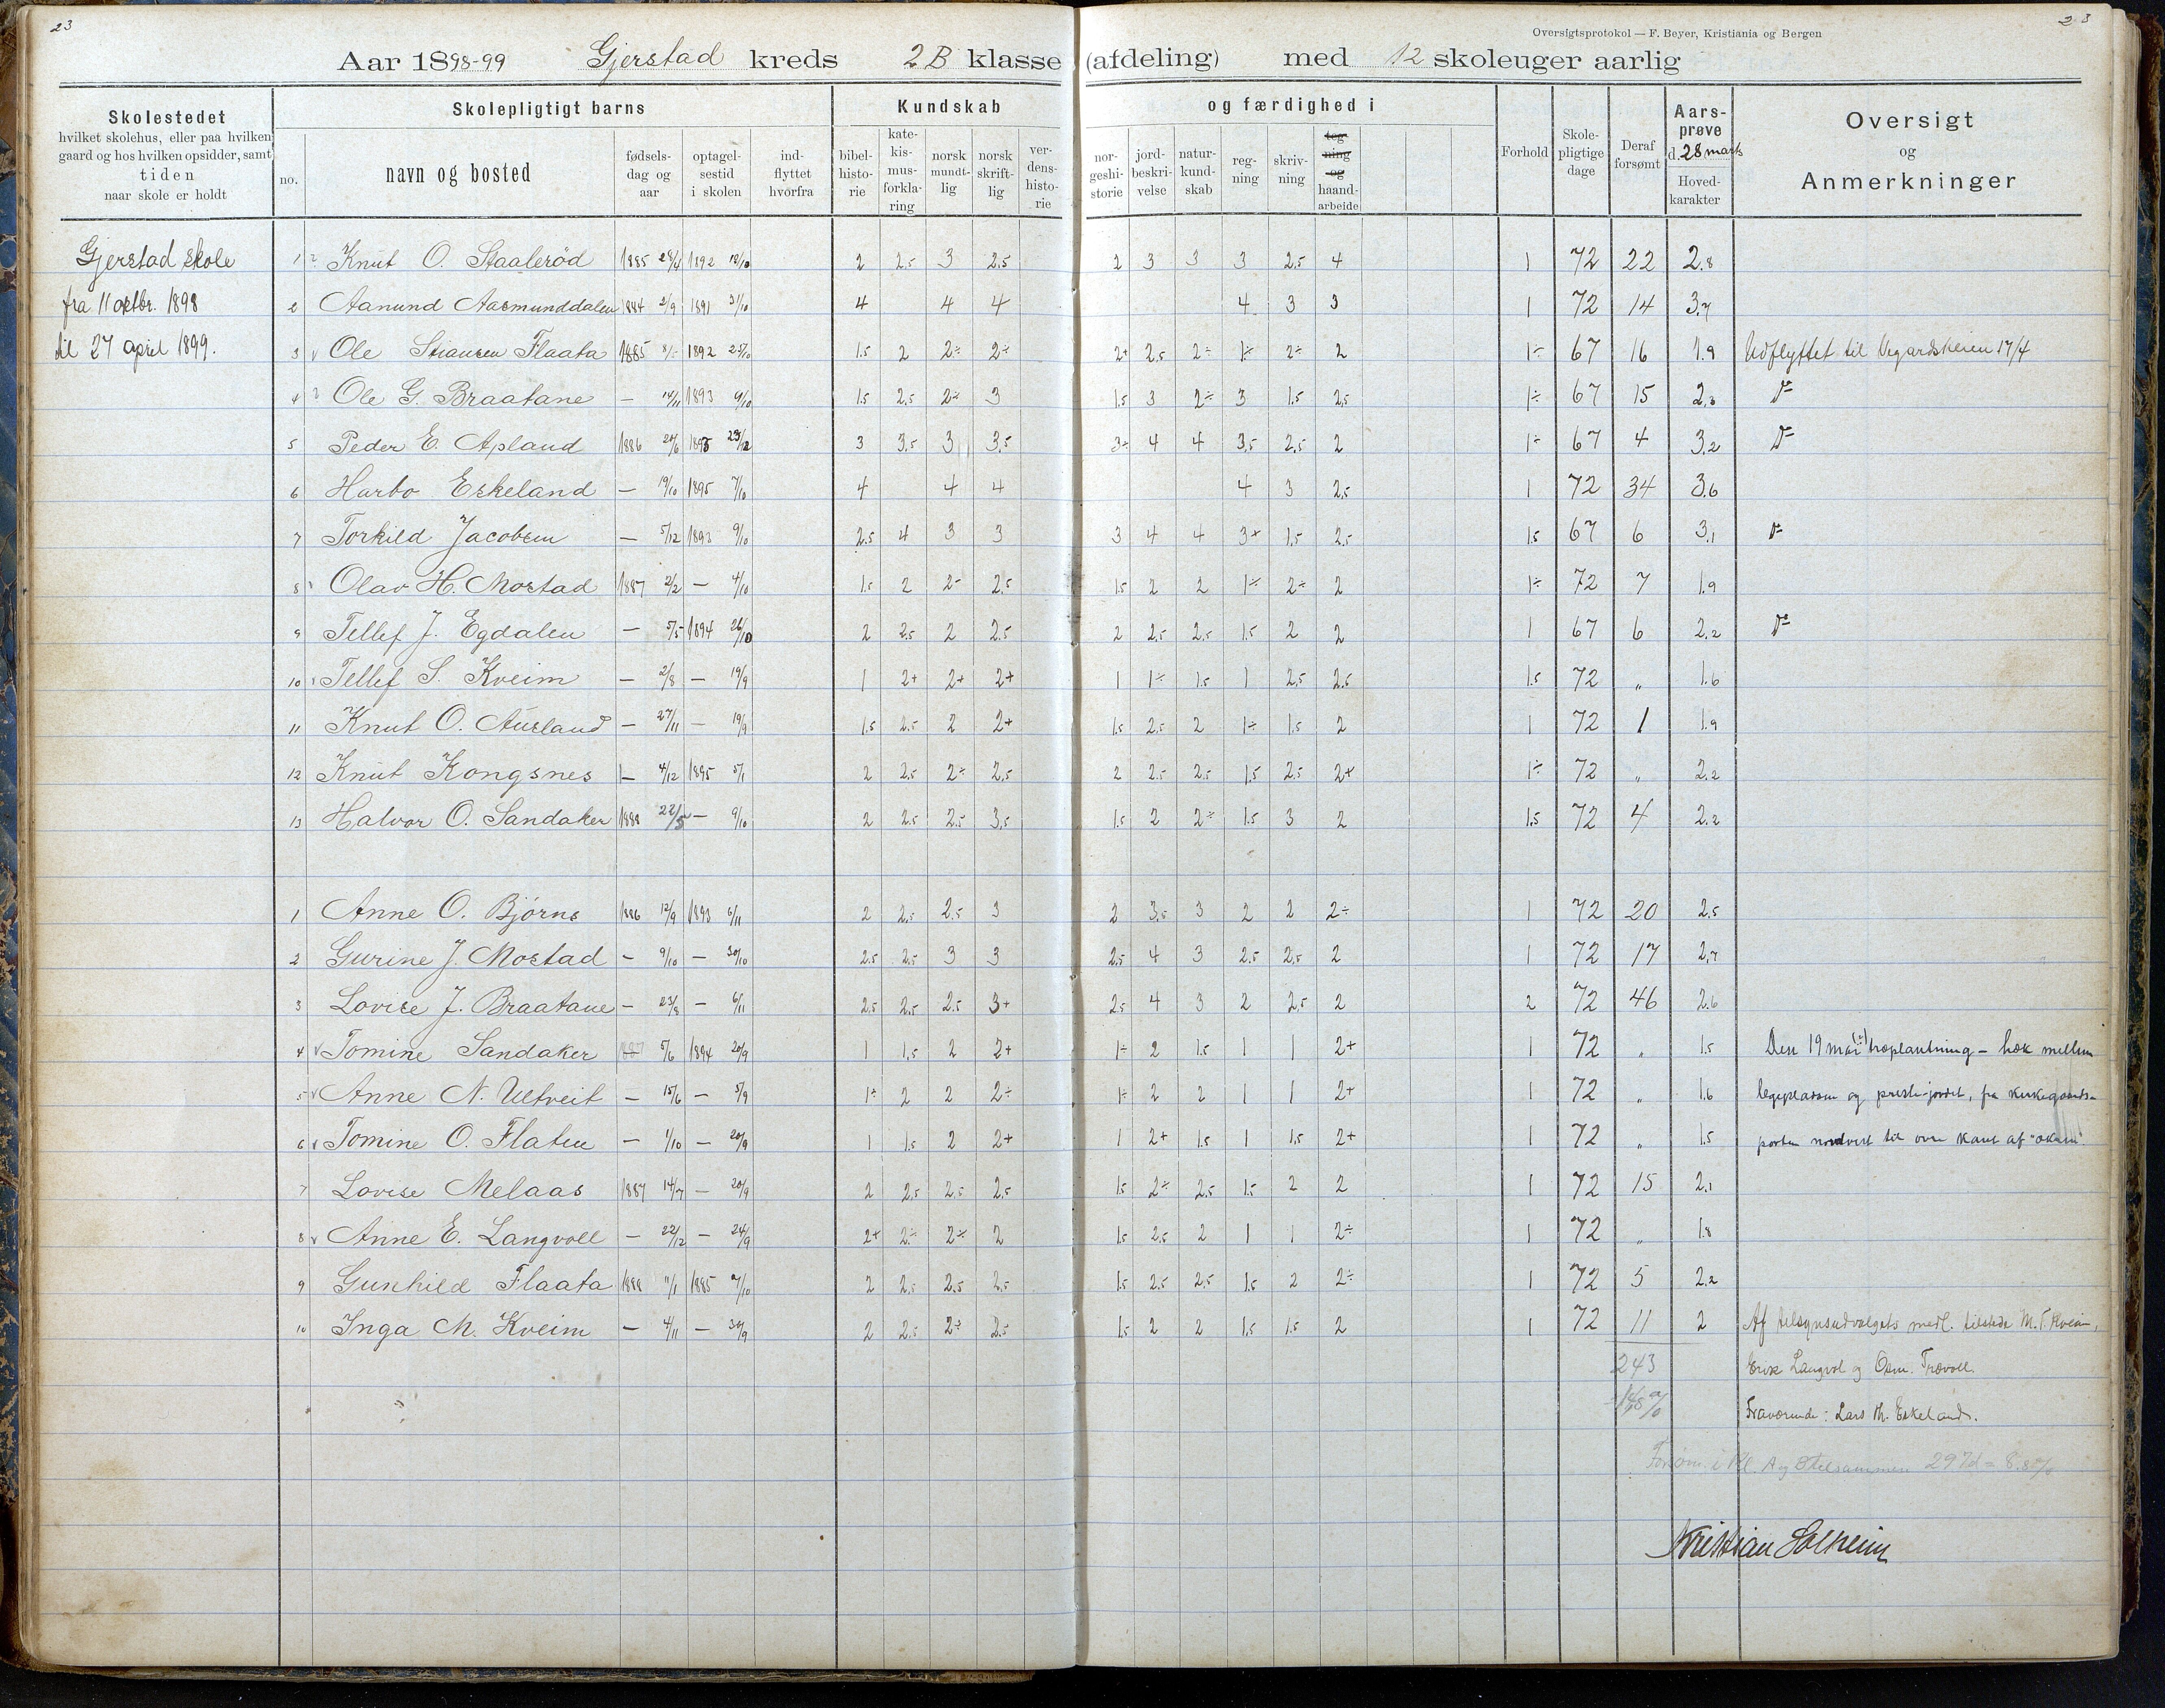 23
23
Oversigtsprotokol — F. Beyer, Kristiania og Bergen
Aar 1898-99 Gjerstad kreds 2B klasse (afdeling) med 12 skoleuger aarlig
Skolestedet
hvilket skolehus, eller paa hvilken
gaard og hos hvilken opsidder, samt
tiden
naar skole er holdt
Skolepligtigt barns
no.
navn og bosted
fødsels-
dag og
aar
optagel-
sestid
i skolen
ind-
flyttet
hvorfra
Kundskab og færdighed i
bibel-
histo-
rie
kate-
kis-
mus-
forkla-
ring
norsk
mundt-
lig
norsk
skrift-
lig
ver-
dens-
histo-
rie
nor-
geshi-
storie
jord-
beskri-
velse
natur-
kund-
skab
reg-
ning
skriv-
ning
teg-
ning
og
haand-
arbeide
Forhold
Skole-
pligtige
dage
Deraf
forsømt
Aars-
prøve
d. 28 marts
Hoved-
karakter
Oversigt
og
Anmerkninger
Gjerstad skole
fra 11 oktbr. 1898
til 27 april 1899.
1 Knut O. Staalerød 1885 28/4 1892 12/10 2 2.5 3 2.5 2 3 3 3 2.5 4 1 72 22 2.8
2 Aanund Aasmunddalen 1884 2/9 1891 31/10 4 4 4 4 3 3 1 72 14 3.7
3 Ole Stiansen Flaata 1885 1892 25/10 1.5 2 2÷ 2÷ 2+ 2.5 2÷ 1÷ 2÷ 2 1÷ 67 16 1.9 Udflyttet til Vegardsheien 17/4
4 Ole G. Braatane — 14/11 1893 9/10 1.5 2.5 2÷ 3 1.5 3 2÷ 3 1.5 2.5 1÷ 67 15 2.3 do
5 Peder E. Apland 1886 24/6 1895 23/12 3 3.5 3 3.5 3÷ 4 4 3.5 2.5 2 1÷ 67 4 3.2 do
6 Harbo Eskeland — 19/10 1895 7/10 4 4 4 4 3 2.5 1 72 34 3.6
7 Torkild Jacobsen — 5/12 1893 9/10 2.5 4 3 3 3 4 4 3+ 1.5 2.5 1.5 67 6 3.1 do
8 Olav H. Mostad 1887 2/2 — 4/10 1.5 2 2÷ 2.5 1.5 2 2 1÷ 2÷ 2 1÷ 72 7 1.9
9 Tellef J. Egdalen — 5/5 1894 26/10 2 2.5 2 2.5 2 2.5 2.5 1.5 2 2 1 67 6 2.2 do
10 Tellef S. Kveim — 2/8 — 19/9 1 2+ 2+ 2+ 1 1÷ 1.5 1 2.5 2.5 1.5 72 „ 1.6
11 Knut O. Ausland — 27/11 — 19/9 1.5 2.5 2 2+ 1.5 2.5 2 1÷ 1.5 2 1 72 1 1.9
12 Knut Kongsnes — 4/12 1895 5/1 2 2.5 2÷ 2.5 2 2.5 2.5 1.5 2.5 2+ 1÷ 72 „ 2.2
13 Halvor O. Sandaker 1888 22/5 — 9/10 2 2.5 2.5 3.5 1.5 2 2÷ 1.5 3 2 1.5 72 4 2.2
1 Anne O. Bjørns 1886 12/9 1893 6/11 2 2.5 2.5 3 2 3.5 3 2 2 2÷ 1 72 20 2.5
2 Gurine J. Mostad — 9/10 — 30/10 2.5 2.5 3 3 2.5 4 3 2.5 2.5 2 1 72 17 2.7
3 Lovise J. Braatane — 23/8 — 6/11 2.5 2.5 2.5 3+ 2.5 4 3 2 2.5 2 2 72 46 2.6
4 Tomine Sandaker 1887 5/6 1894 20/9 1 1.5 2 2+ 1÷ 2 1.5 1 1 2+ 1 72 „ 1.5 Den 19 mai træplantning – hæk mellem
5 Anne N. Ultveit — 15/6 — 5/9 1÷ 2 2 2÷ 1÷ 2 2 1 1 2+ 1 72 „ 1.6 legeplassen og preste-jordet, fra kirkegaards-
6 Tomine O. Flaten — 1/10 — 20/9 1 1.5 2 2+ 1 2+ 1.5 1 1.5 2+ 1 72 „ 1.5 porten nordvest til øvre kant af
7 Lovise Melaas 1887 14/7 — 20/9 2 2.5 2.5 2.5 1.5 2÷ 2.5 1.5 2 2 1 72 15 2.1
8 Anne E. Langvoll — 22/12 — 24/9 2+ 2÷ 2÷ 2 1.5 2.5 2 1 1 2÷ 1 72 „ 1.8
9 Gunhild Flaata 1888 11/1 1885 7/10 2 2.5 2.5 2.5 1.5 2.5 2.5 1.5 2 2÷ 1 72 5 2.2
10 Inga M. Kveim — 4/11 — 30/9 2 2.5 2÷ 2.5 1.5 2 2 1.5 1.5 2 1 72 11 2 Af tilsynsudvalgets medl. tilstede M. T. Kveim,
243 Erik Langvol og Osm. Trævoll.
Fraværende: Lars Th. Eskeland.
Forsøm. i kl. A og B tilsammen 297d = 8.8%
Kristian Solheim